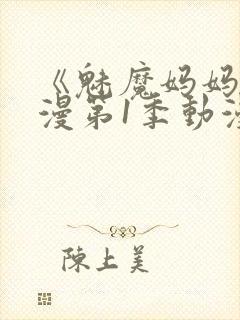 《魅魔妈妈
漫第1季動漫
陳上美